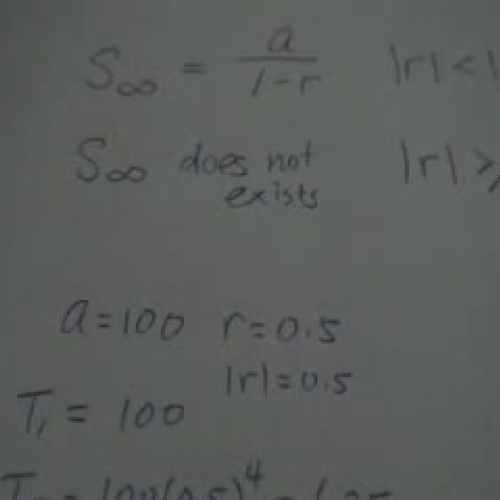 S∞ = a/(1-r) |r| < 1
S∞ does not exists |r| ≥
a = 100 r = 0.5
|r| = 0.5
T₁ = 100